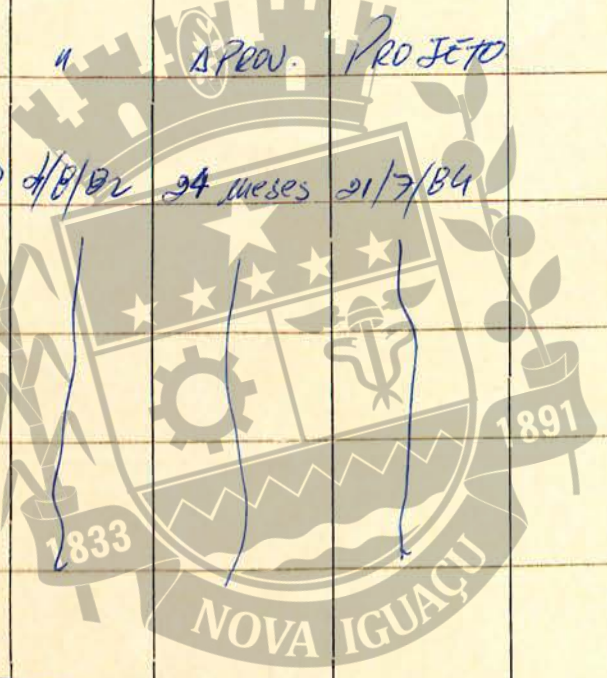 " APROV. PROJETO
24 meses 21/7/84
1891
1833
NOVA IGUAÇU